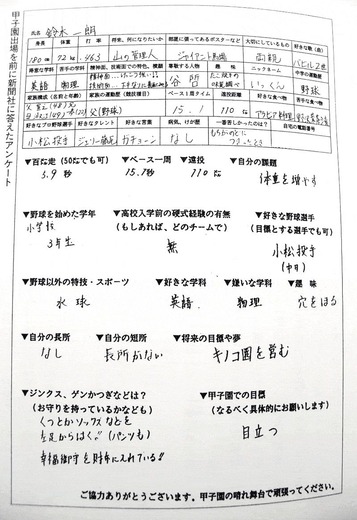 甲子園出場を前に新聞社に答えたアンケート
氏名 鈴木一朗
身長 体重 打率 将来、何になりたいか 部屋に張ってあるポスターなど 大切にしているもの 好きな色(自)
180cm 72kg .463 山の管理人 ジャイアント馬場 両親
得意な学科 苦手の学科 精神面、技術面での特色、横顔 尊敬する人物 趣味 ニックネーム 中学の運動歴
英語 物理 谷所 いっくん 野球
家族構成 家族の運動歴(競技種目) ベース1周タイム 遠投距離 好きな食べ物 嫌いな食べ物
父(野球) 15.1 110m
好きなプロ野球選手 好きなタレント 好きな言葉 病気、けが歴 一番苦しかったのは? 自宅の電話番号
小松投手 ガチョーン なし
▼百な走(50なでも可) ▼ベース一周 ▼遠投 ▼自分の課題
5.9秒 15.1秒 110m 体重を増やす
▼野球を始めた学年 ▼高校入学前の硬式経験の有無 ▼好きな野球選手
(もしあれば、どのチームで) (目標とする選手でも可)
小学校
3年生 無 小松投手
(中日)
▼野球以外の特技・スポーツ ▼好きな学科 ▼嫌いな学科 ▼趣味
水球 英語 物理 穴をほる
▼自分の長所 ▼自分の短所 ▼将来の目標や夢
なし 長所がない キノコ園を営む
▼ジンクス、ゲンかつぎなどは? ▼甲子園での目標
(お守りを持っているかなども) (なるべく具体的にお願いします)
くつとかソックスなどを
左足からはく。(パンツも) 目立つ
幸福御守を財布に入れている!!
ご協力ありがとうございます。甲子園の晴れ舞台で頑張ってください。